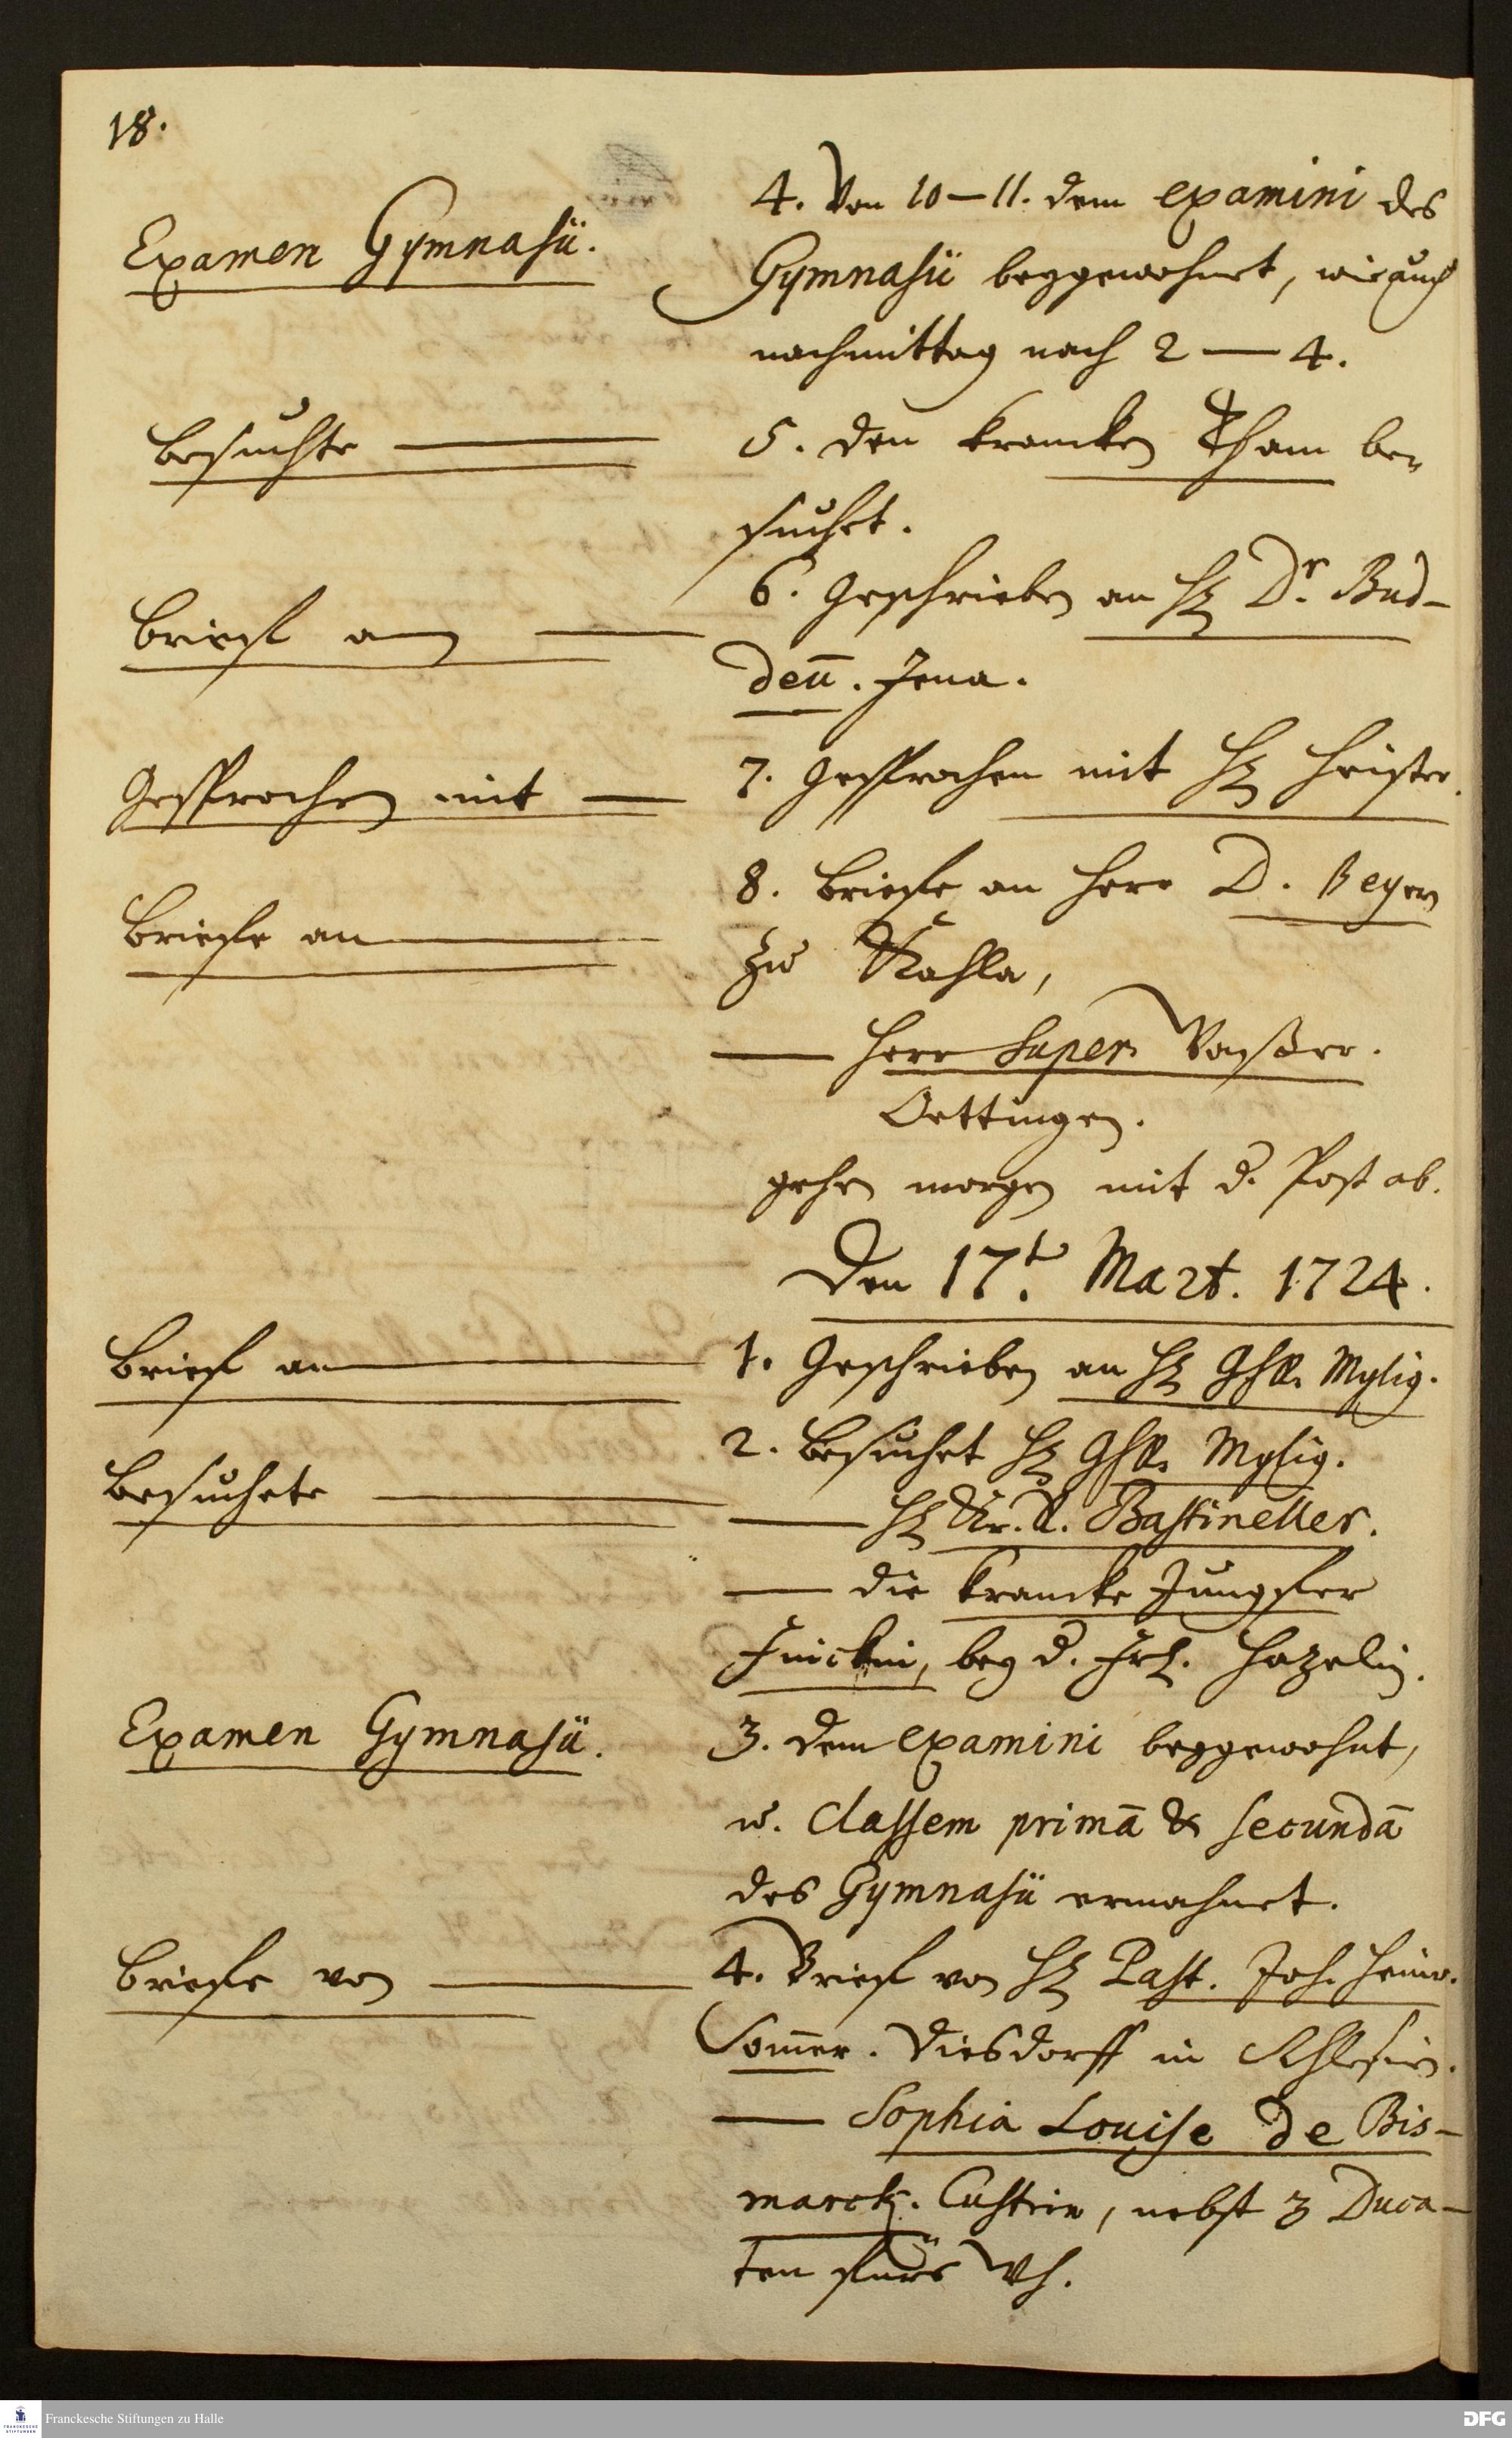 18.
Examen Gymnasii.
4. Von 10–11. dem examini des
Gymnasii beygewohnet, wie auch
nachmittag nach 2 — 4.
Besuchte —
5. den krancken Tham be-
suchet.
Brief an —
6. Geschrieben an H. Dr. Bud-
deū. Jena.
Gesprochen mit —
7. Gesprochen mit H.
Briefe an —
8. Briefe an Herr D. Beyer
zu Kahla,
— Herr Super
Oettingen.
gehen morgen mit d. Post ab.
Den 17t. Mart. 1724.
Brief an —
1. Geschrieben an H. Mylig.
Besuchete —
2. Besuchet H. Mylig.
— H. Bastineller.
— die krancke Jungfer
bey d.
Examen Gymnasii.
3. dem examini beygewohnt,
u. Classem primā & secundā
des Gymnasii ermahnet.
Briefe von —
4. Brief von H. Past. Joh. Heinr.
Som̄er. Diesdorff in Schlesien.
— Sophia Louise de Bis-
marck. Custrin, nebst 3 Duca-
ten fürs Wh.
Franckesche Stiftungen zu Halle
FRANCKESCHE STIFTUNGEN
DFG